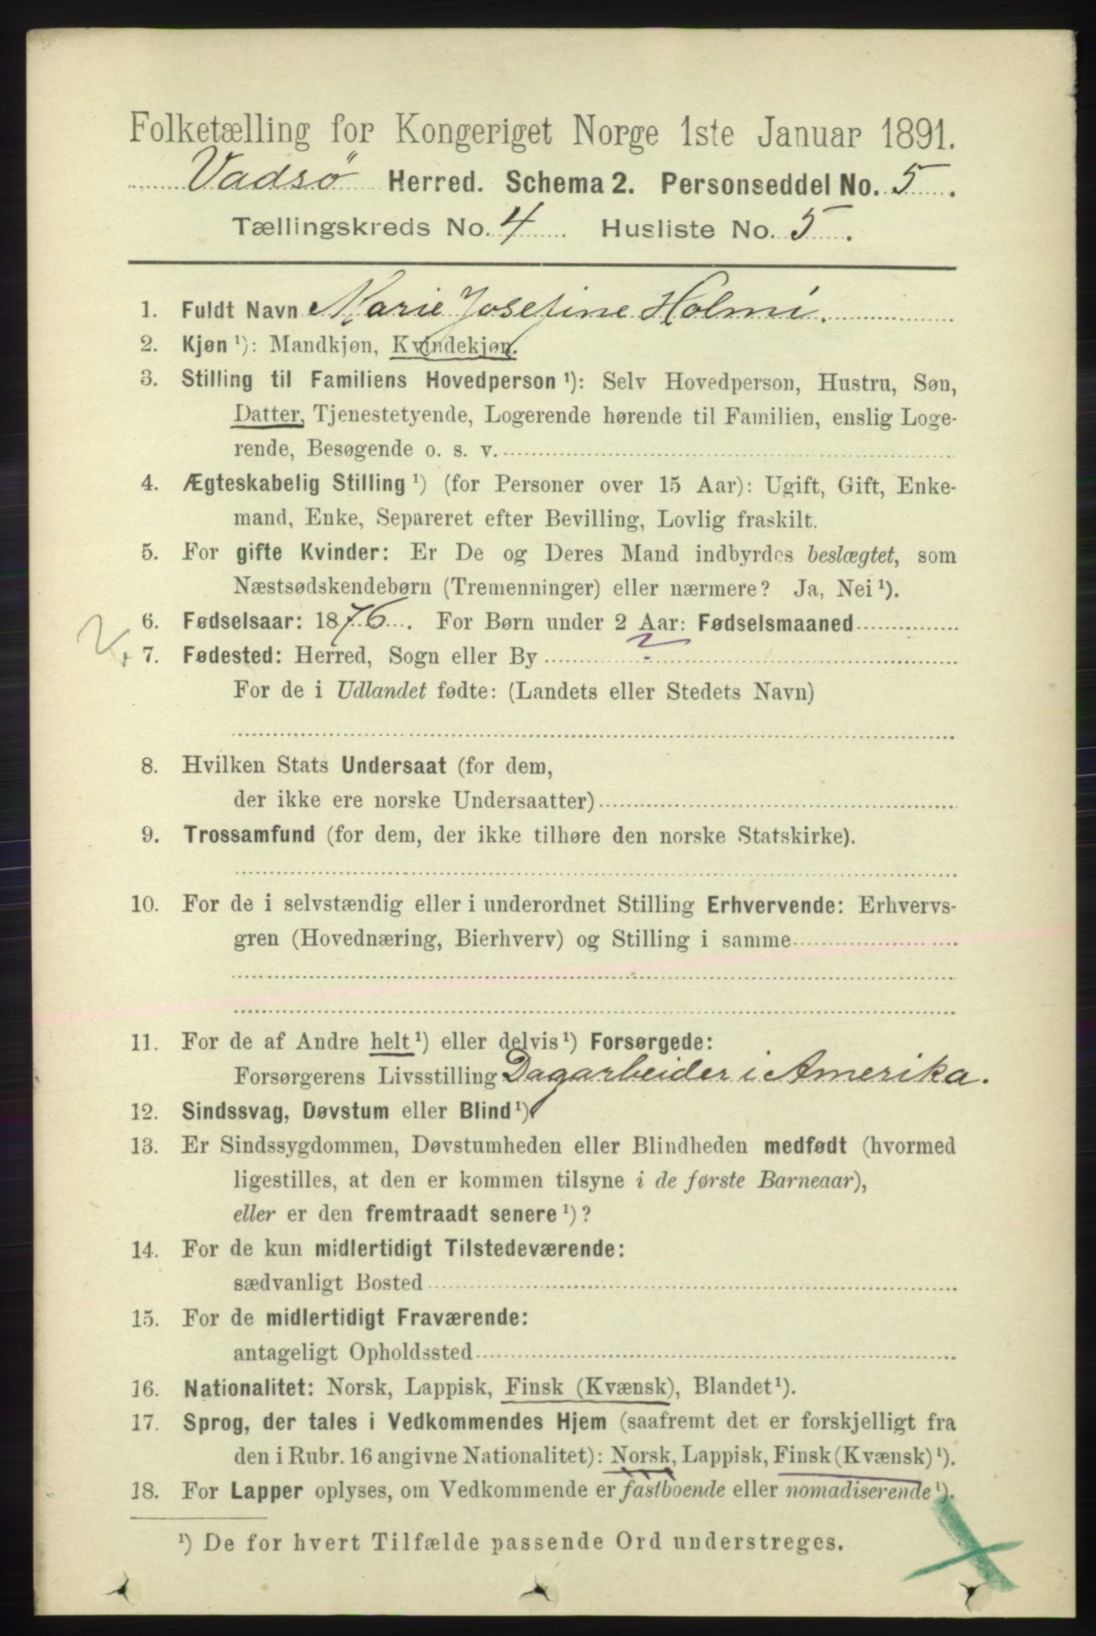 Folketælling for Kongeriget Norge 1ste Januar 1891.
Vadsø Herred. Schema 2. Personseddel No. 5.
Tællingskreds No. 4. Husliste No. 5.
1. Fuldt Navn Marie Josefine Holmi.
2. Kjøn ¹): Mandkjøn, Kvindekjøn.
3. Stilling til Familiens Hovedperson ¹): Selv Hovedperson, Hustru, Søn,
Datter, Tjenestetyende, Logerende hørende til Familien, enslig Loge-
rende, Besøgende o. s. v.
4. Ægteskabelig Stilling ¹) (for Personer over 15 Aar): Ugift, Gift, Enke-
mand, Enke, Separeret efter Bevilling, Lovlig fraskilt.
5. For gifte Kvinder: Er De og Deres Mand indbyrdes beslægtet, som
Næstsødskendebørn (Tremenninger) eller nærmere? Ja, Nei ¹).
6. Fødselsaar: 1876. For Børn under 2 Aar: Fødselsmaaned
7. Fødested: Herred, Sogn eller By ?
For de i Udlandet fødte: (Landets eller Stedets Navn)
8. Hvilken Stats Undersaat (for dem,
der ikke ere norske Undersaatter)
9. Trossamfund (for dem, der ikke tilhøre den norske Statskirke).
10. For de i selvstændig eller i underordnet Stilling Erhvervende: Erhvervs-
gren (Hovednæring, Bierhverv) og Stilling i samme
11. For de af Andre helt ¹) eller delvis ¹) Forsørgede:
Forsørgerens Livsstilling Dagarbeider i Amerika.
12. Sindssvag, Døvstum eller Blind ¹)
13. Er Sindssygdommen, Døvstumheden eller Blindheden medfødt (hvormed
ligestilles, at den er kommen tilsyne i de første Barneaar),
eller er den fremtraadt senere ¹)?
14. For de kun midlertidigt Tilstedeværende:
sædvanligt Bosted
15. For de midlertidigt Fraværende:
antageligt Opholdssted
16. Nationalitet: Norsk, Lappisk, Finsk (Kvænsk), Blandet ¹).
17. Sprog, der tales i Vedkommendes Hjem (saafremt det er forskjelligt fra
den i Rubr. 16 angivne Nationalitet): Norsk, Lappisk, Finsk (Kvænsk) ¹).
18. For Lapper oplyses, om Vedkommende er fastboende eller nomadiserende ¹).
¹) De for hvert Tilfælde passende Ord understreges.